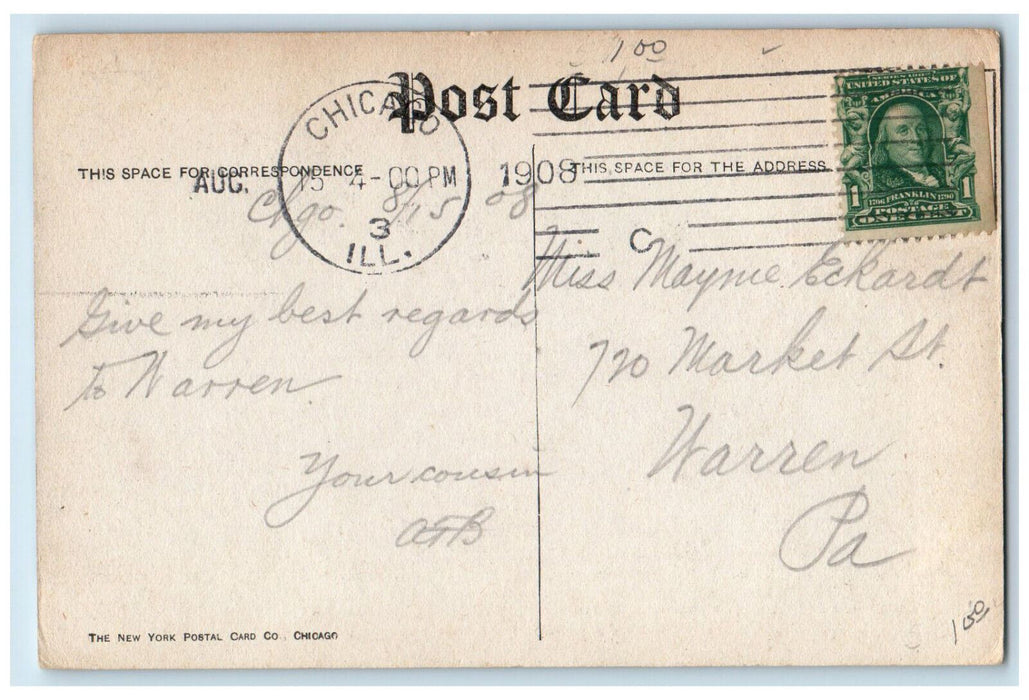 1.00
Post Card
THIS SPACE FOR CORRESPONDENCE
THIS SPACE FOR THE ADDRESS
CHICAGO
AUG. 15 4-00 PM 1908
3
ILL.
C
SERIES 1902
UNITED STATES OF
AMERICA
1 1
1706 FRANKLIN 1790
POSTAGE
ONE CENT
Chgo. 8/15 08
Give my best regards
to Warren
Your cousin
Miss Mayme Eckardt
720 Market St.
Warren
Pa
THE NEW YORK POSTAL CARD CO., CHICAGO
1.00